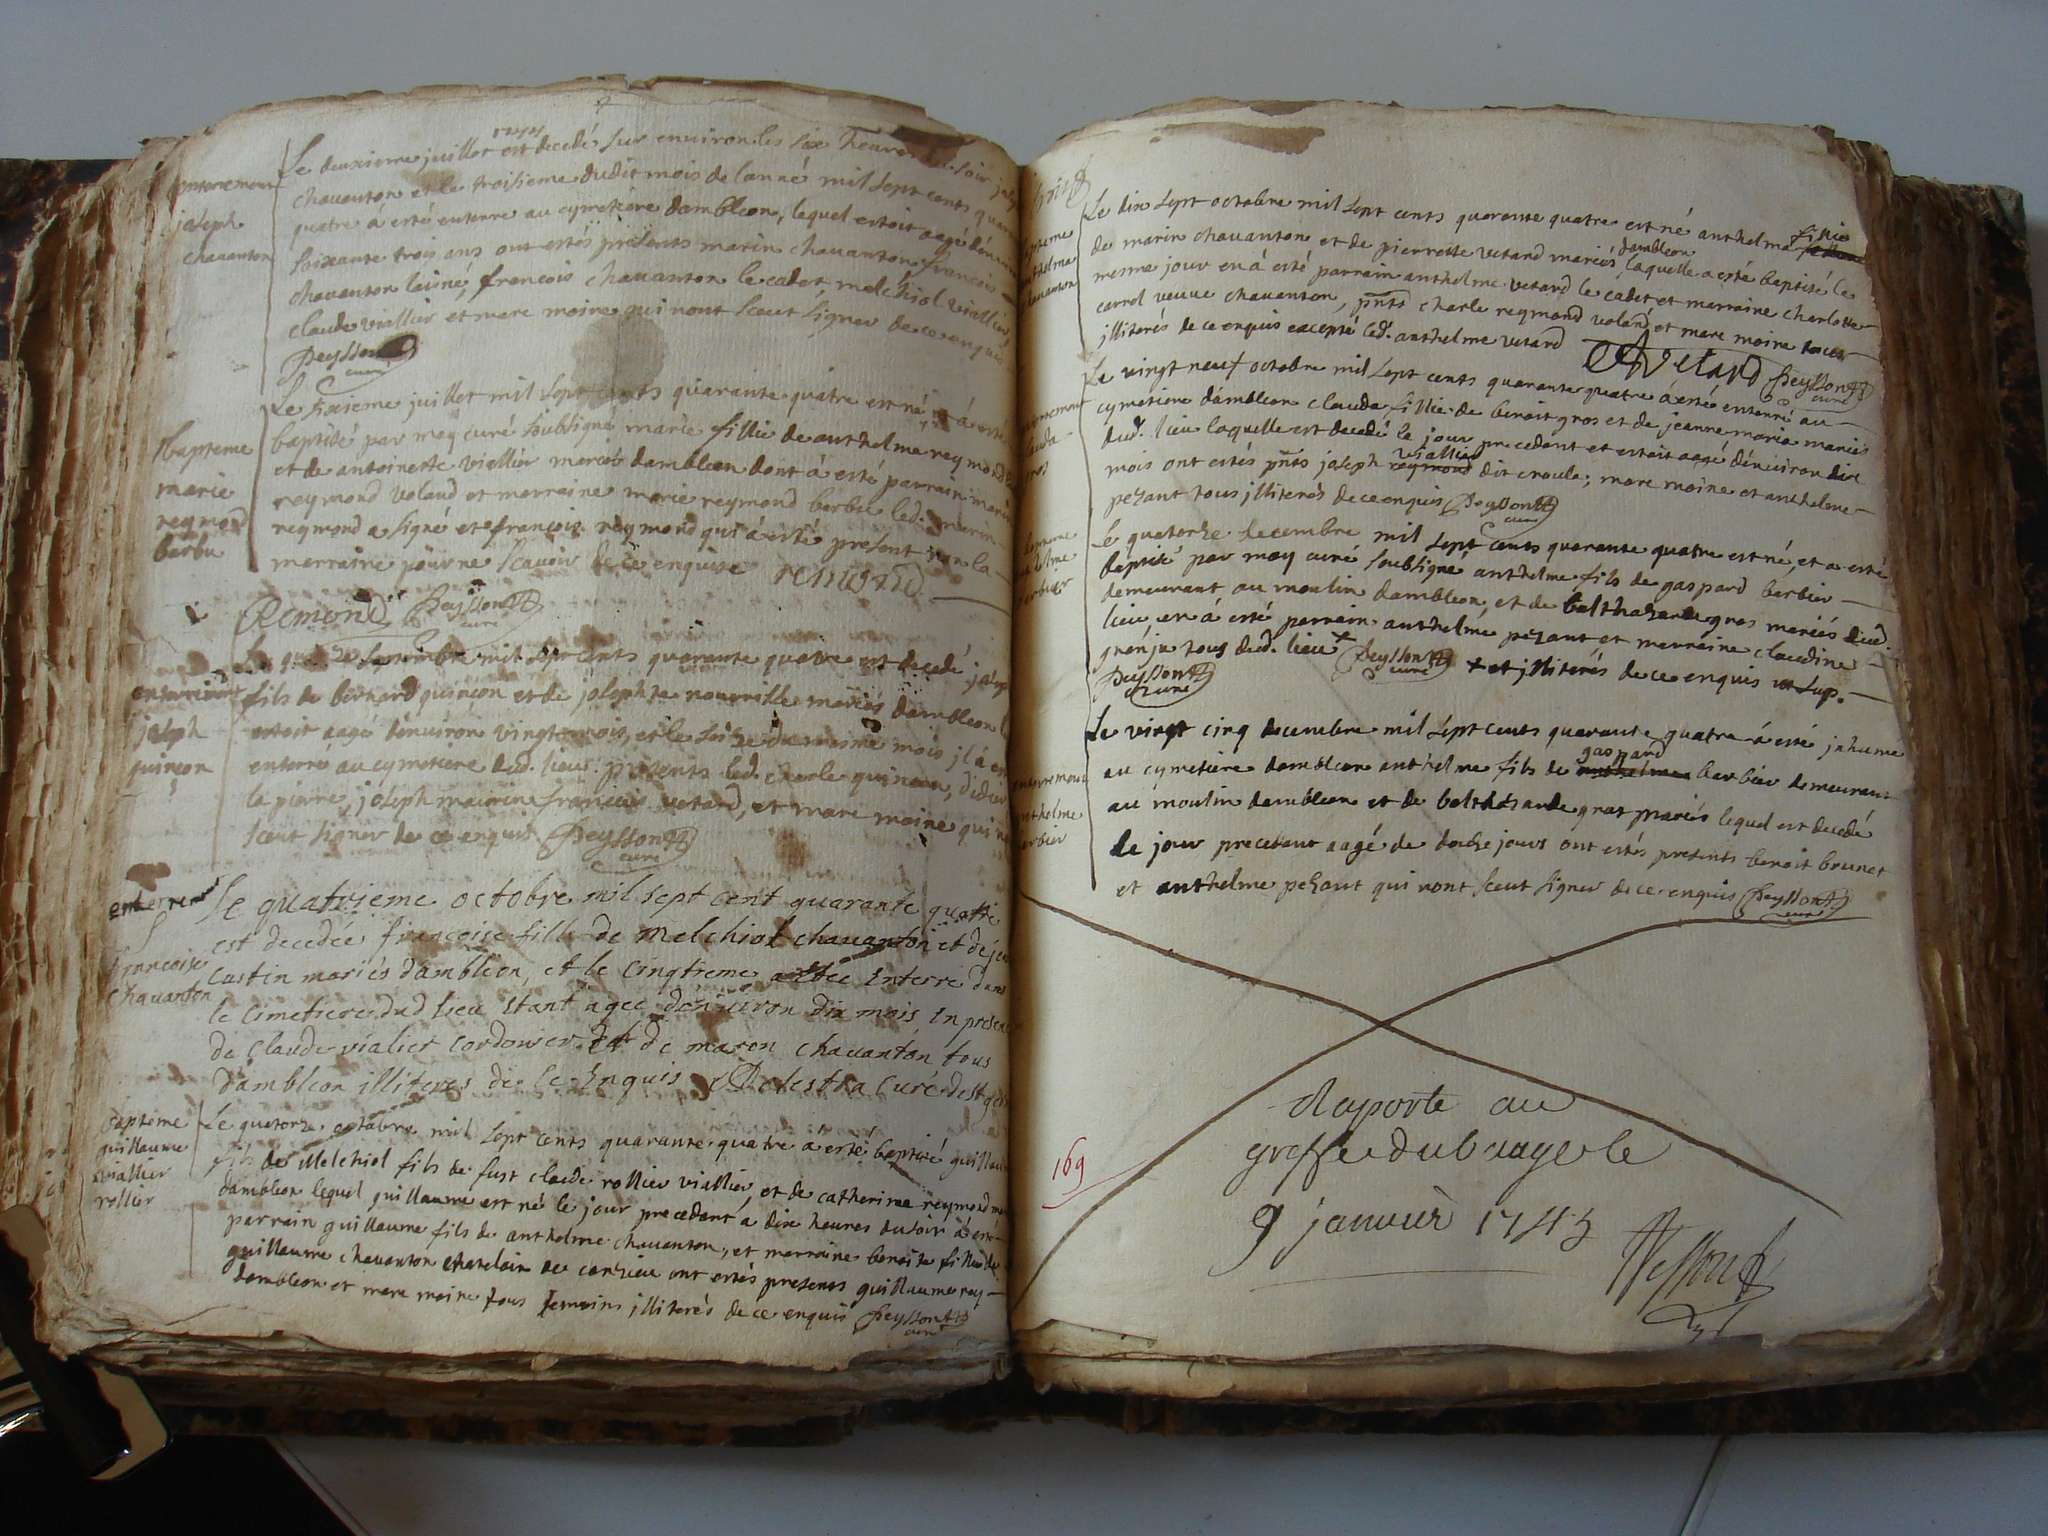 1744
Le deuxieme juillet est decedé sur environ les six heures soir
enterrement
chavanton et le troisieme dudit mois de lanné mil sept cents
joseph
quatre a esté enterre au cymetiere dambleon, lequel estoit aagé
chavanton
soixante trois ans ont estés presents marin chavanton francois
chavanton laisné, francois chavanton le cadet, melchiol viallier
claude viallier et marc moine qui nont sceut signer de ce enquis
Peysson
curé
Le sixieme juillet mil sept cents quarante quatre est né et à esté
bapteme
baptisé par moy curé soubsigné marie fillie de anthelme reymond
marie
et de antoinette viallier mariés dambleon dont à esté parrain
reymond
reymond voland et marraine marie reymond barbu led. marin
barbu
reymond a signé et francois reymond qui à esté present non la
marraine pour ne scavoir de ce enquise
Remond Peysson
curé
septembre mil sept cents quarante quatre est decedé
enterrement
fils de bernard quinçon et de josephte nourrille mariés dambleon
joseph
estoit aagé dénviron vingt mois, et le seize du mesme mois jl à
quinçon
enterré au cymetiere dud. lieu. presents led. charle quincon, didier
la pierre, joseph maurin francois vetard, et marc moine qui
sceut signer de ce enquis Peysson
curé
enterrem
Le quatrieme octobre mil sept cent quarante quatre
est decedée françoise fille de Melchiol chavanton et de
francoise
Custin mariés dambleon, et le cinqtieme a estée Enterré dans
chavanton
le cimetiere dud lieu Etant agee dénviron dix mois En
de claude vialier cordonier Et de maron chavanton tous
dambleon illiteres de ce Enquis Delestra curé
bapteme
Le quatorze octobre mil sept cents quarante quatre à esté baptisé
guillaume
fils de Melchiol fils de fust claude rollier viallier, et de catherine reymond
viallier
dambleon lequel guillaume est né le jour precedent à dix heures du soir à
rollier
parrain guillaume fils de anthelme chavanton, et marraine benoite fillie de
guillaume chavanton chatelain de conzieu ont estés presents guillaume rey-
dambleon et marc moine tous temoins illiterés de ce enquis Peysson
curé
Le dix sept octobre mil sept cents quarante quatre est né anthelma fillie
de marin chavanton et de pierrette vetard mariés dambleon, laquelle a esté baptisé le
mesme jour en à esté parrain anthelme vetard le cadet et marraine charlotte
carrel veuve chavanton, pnts charle reymond voland et marc moine tous
jlliterés de ce enquis excepté led. anthelme vetard AVetard Peysson
curé
Le vingt neuf octobre mil sept cents quarante quatre à esté enterré au
cymetiere dambleon clauda fillie de benoit gros et de jeanne marie mariés
dud. lieu laquelle est decedé le jour precedent et estoit aagé dénviron dix
mois ont estés pnts joseph viallier dit croule; marc moine et anthelme
pezant tous jlliterés de ce enquis Peysson
curé
Le quatorze decembre mil sept cents quarante quatre est né, et a esté
baptisé par moy curé soubsigné anthelme fils de gaspard barbier
demeurant au moulin dambleon, et de balthazarde gros mariés dud.
lieu en à esté parrain anthelme pezant et marraine claudine
granju tous dud. lieu + Peysson curé + et jlliterés de ce enquis ut sup.
Peysson
curé
Le vingt cinq decembre mil sept cents quarante quatre à esté jnhumé
au cymetiere dambleon anthelme fils de gaspard barbier demeurant
enterrement
au moulin dambleon et de balthésarde gros mariés lequel est decedé
anthelme
le jour precedent aagé de douze jours ont estés presents benoit brunet
barbier
et anthelme pezant qui nont sceut signer de ce enquis Peysson
curé
raporté au
greffe du bugey le
169
9 janvier 1745